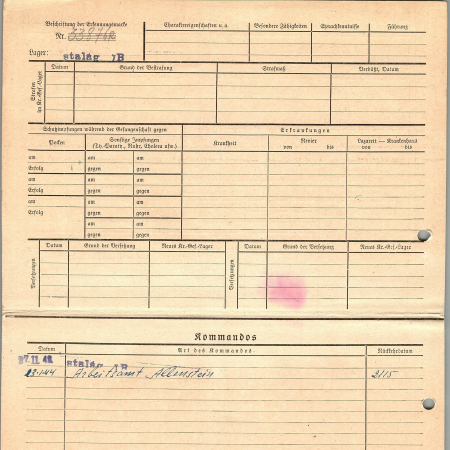 Beschriftung der Erkennungsmarke
Nr.
Lager: Stalag IB
Charaktereigenschaften u. a.
Besondere Fähigkeiten
Sprachkenntnisse
Führung
Strafen im Kr.-Gef.-Lager
Datum
Grund der Bestrafung
Strafmaß
Verbüßt, Datum
Schutzimpfungen während der Gefangenschaft gegen
Erkrankungen
Pocken
Sonstige Impfungen
(Ty.-Paraty., Ruhr, Cholera usw.)
Krankheit
Revier
von bis
Lazarett — Krankenhaus
von bis
am am am
Erfolg gegen gegen
am am am
Erfolg gegen gegen
am am am
Erfolg gegen gegen
am am
gegen gegen
Versetzungen
Datum
Grund der Versetzung
Neues Kr.-Gef.-Lager
Versetzungen
Datum
Grund der Versetzung
Neues Kr.-Gef.-Lager
Kommandos
Datum
Art des Kommandos
Rückkehrdatum
Stalag IB
Arbeitsamt Allenstein
2115